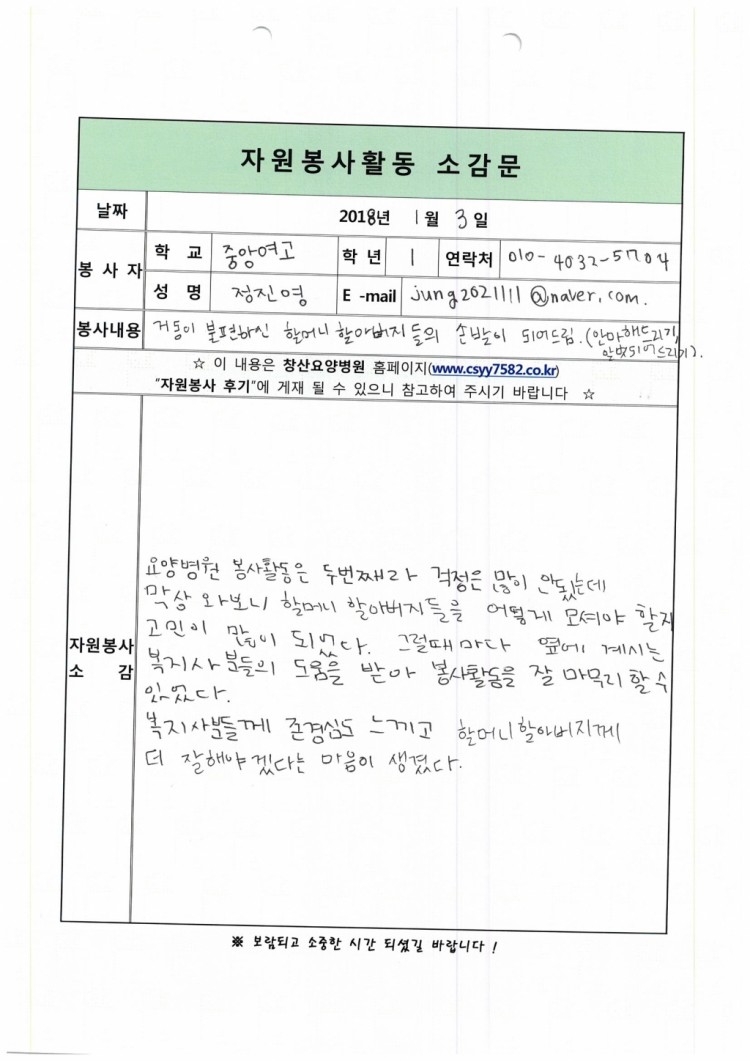 자원봉사활동 소감문
날짜
2018년 1월 3일
봉사자
학 교
중앙여고
학 년
1
연락처
010-4032-5704
성 명
정진영
E -mail
jung2021111@naver.com.
봉사내용
거동이 불편하신 할머니 할아버지들의 손발이 되어드림.(안마해드리기,
말벗되어드리기).
☆ 이 내용은 창산요양병원 홈페이지(www.csyy7582.co.kr)
"자원봉사 후기"에 게재 될 수 있으니 참고하여 주시기 바랍니다 ☆
자원봉사
소 감
요양병원 봉사활동은 두번째라 걱정은 많이 안됬는데
막상 와보니 할머니 할아버지들을 어떻게 모셔야 할지
고민이 많이 되었다. 그럴때마다 옆에 계시는
복지사 분들의 도움을 받아 봉사활동을 잘 마무리 할 수
있었다.
복지사분들께 존경심도 느끼고 할머니할아버지께
더 잘해야겠다는 마음이 생겼다.
※ 보람되고 소중한 시간 되셨길 바랍니다 !